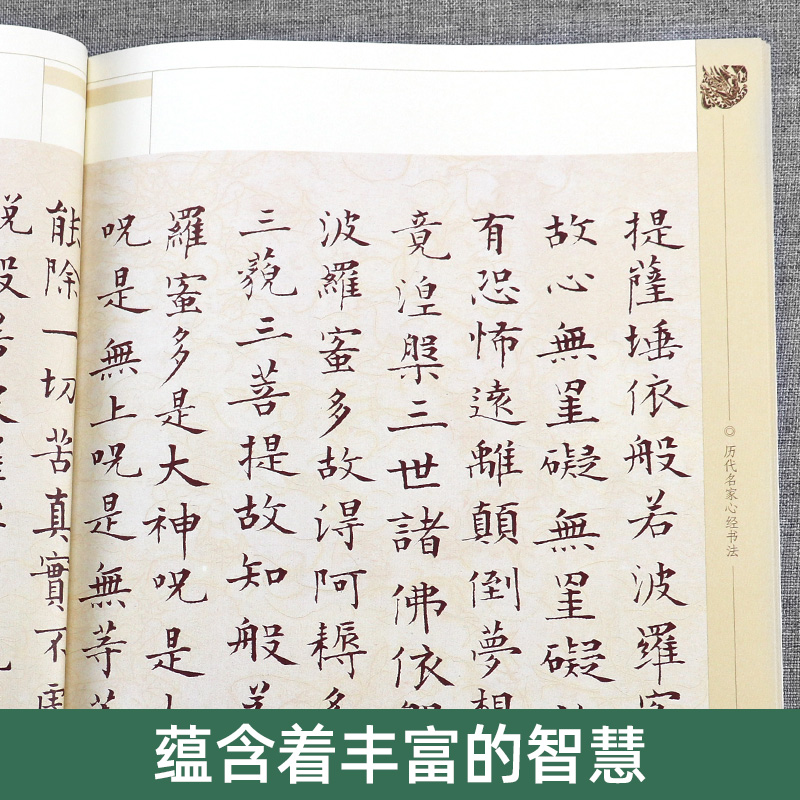 提薩埵依般若波羅
故心無罣礙無罣礙
有恐怖遠離顛倒夢想
竟涅槃三世諸佛依般
波羅蜜多故得阿耨多
三藐三菩提故知般
羅蜜多是大神呪是
呪是無上呪是無等
能除一切苦真實不虛
◎历代名家心经书法
蕴含着丰富的智慧